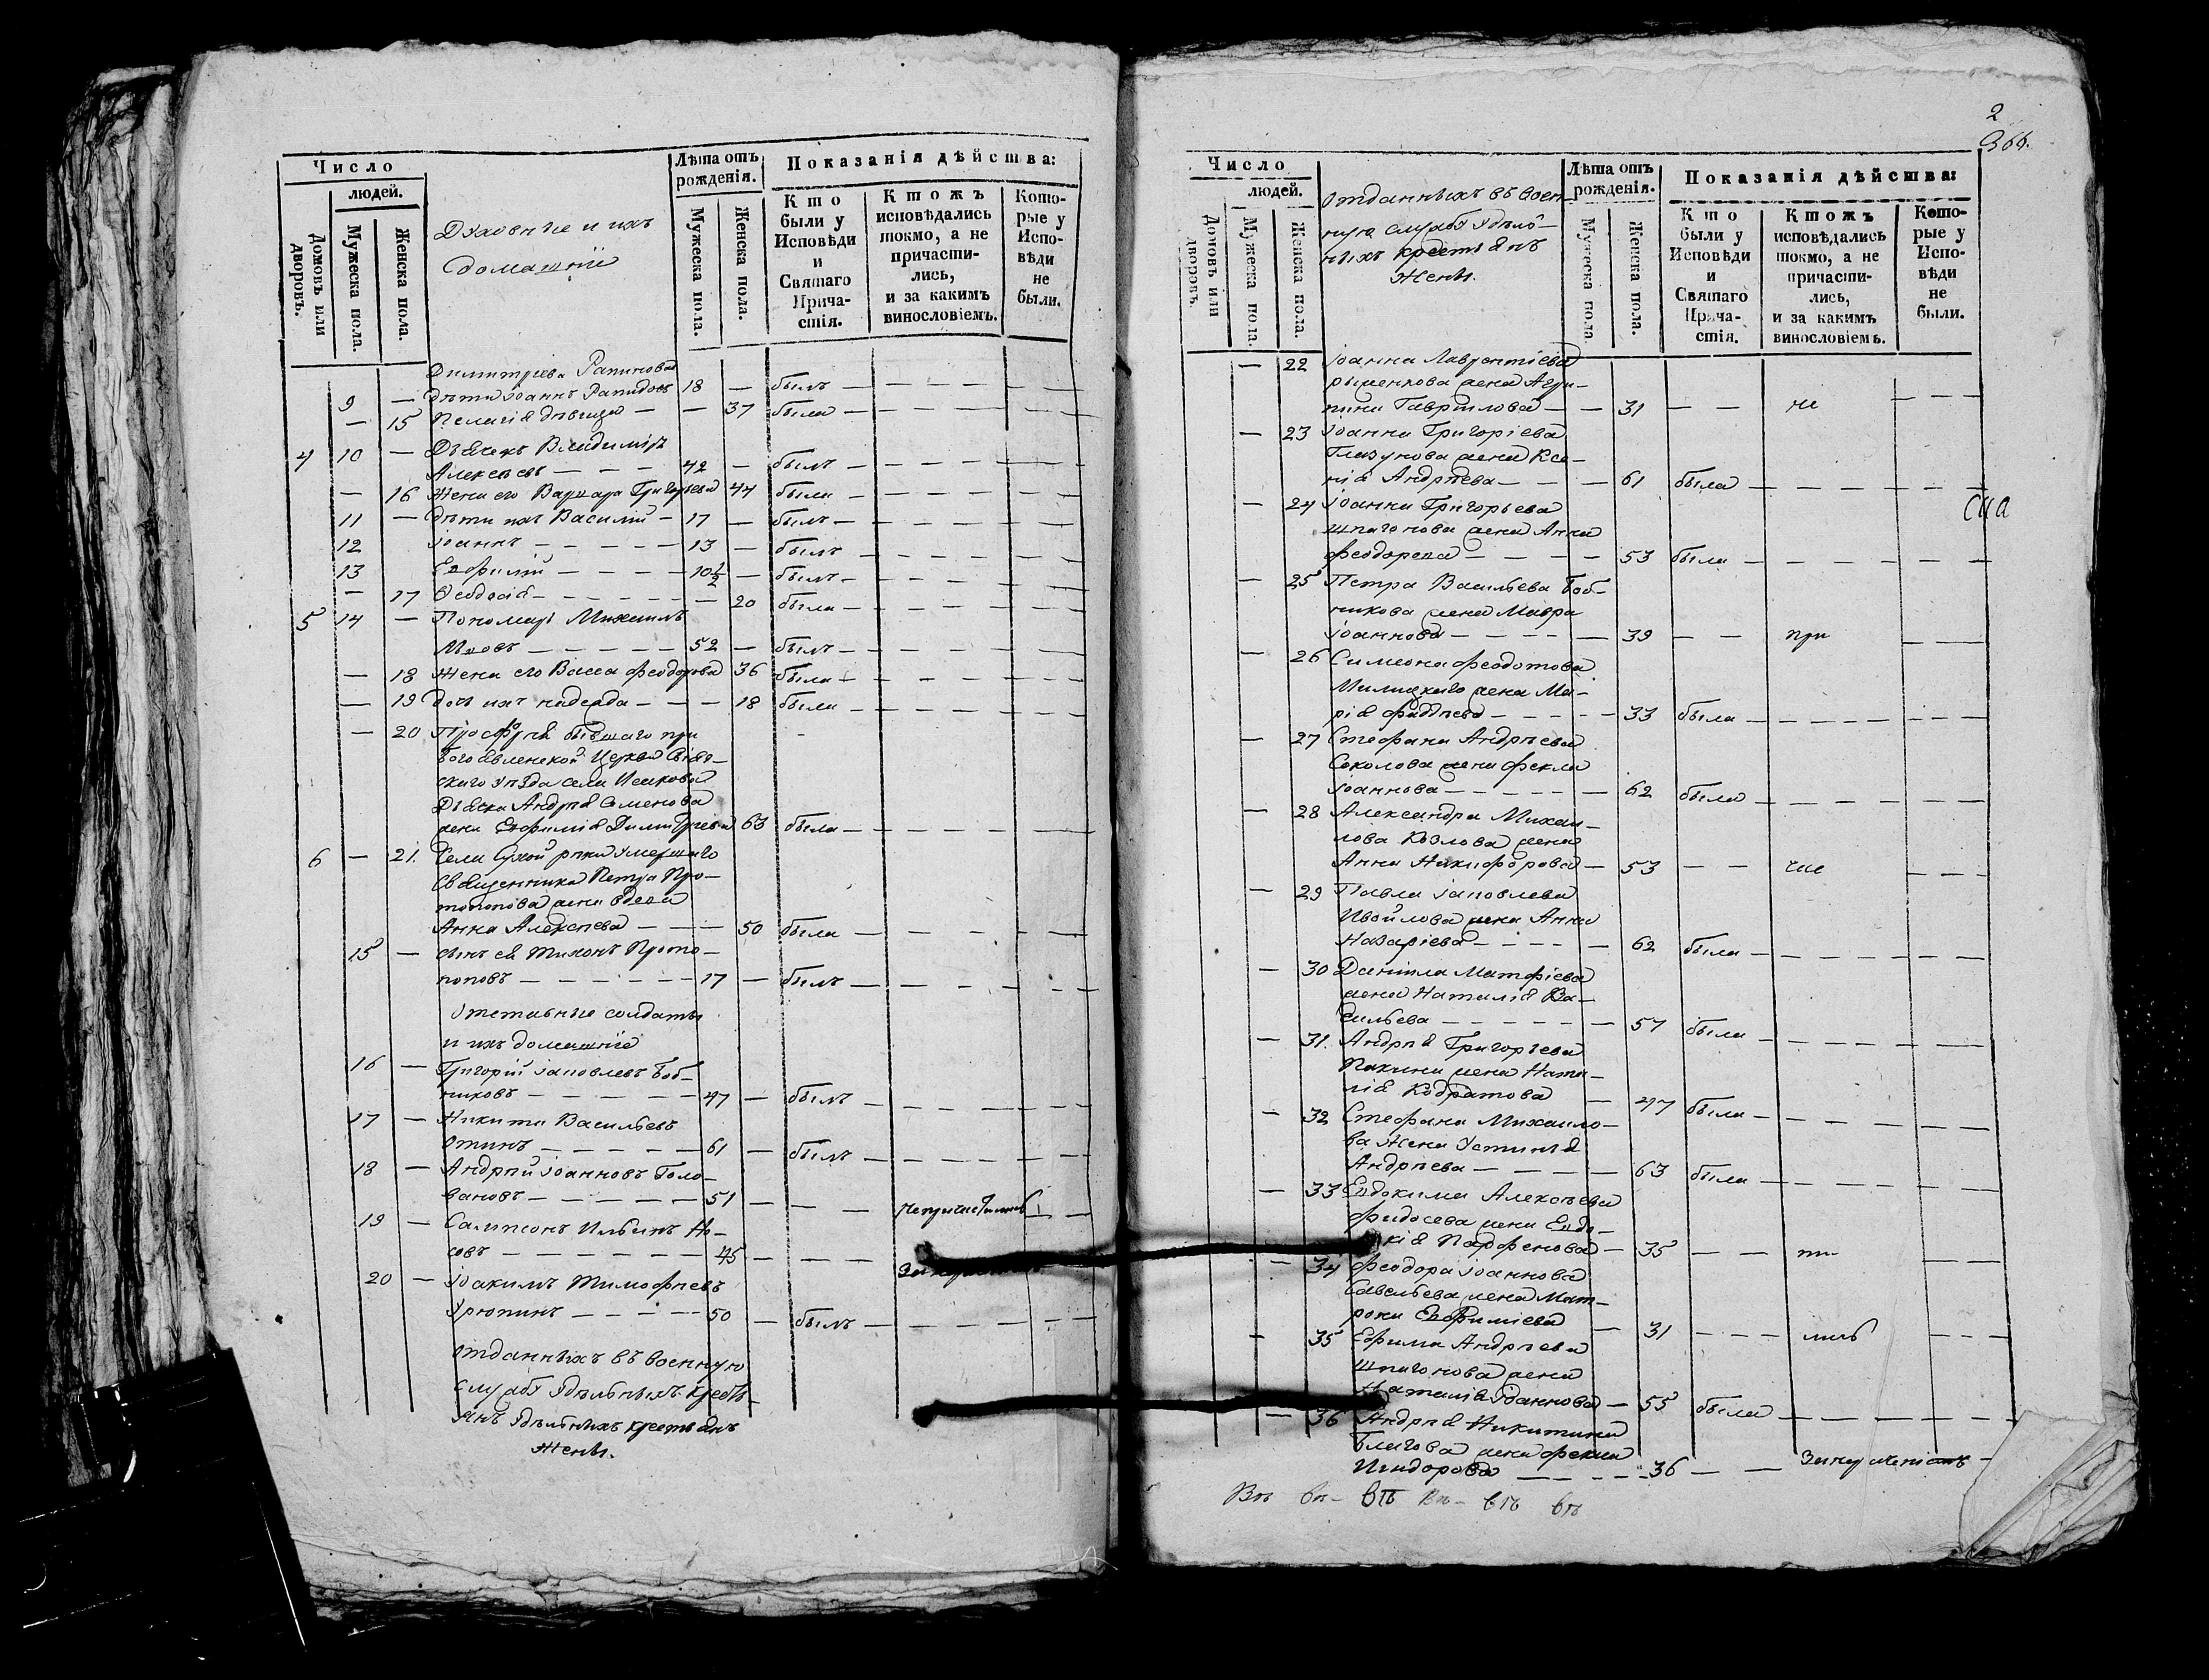 Число
людей.
Домовъ или дворовъ.
Мужеска пола.
Женска пола.
Духовные и ихъ
домашнiе
Лѣта отъ рожденiя.
Мужеска пола.
Женска пола.
Показанiя дѣйства:
Кто были у Исповѣди и Святаго Прича-стiя.
Ктожъ исповѣдались токмо, а не причасти-лись, и за какимъ винословiемъ.
Кото-рые у Испо-вѣди не были.
Димитрiева
9 — дѣти Iоаннъ 18 — былъ — — — —
— 15 Пелагiя дѣвица — — 37 была — — — —
4 10 — Дьячекъ Владимiръ
Алексѣевъ — — — 42 — былъ — — — —
— 16 Жена его Варвара Григорьева 44 была — — — —
11 — дѣти ихъ Василiй — 17 — былъ — — — —
12 Iоаннъ — — — — 13 — былъ — — — —
13 Евфимiй — — — — 10½ — былъ — — — —
— 17 Ѳеодосiя — — — — — 20 была — — — —
5 14 — Пономарь Михаилъ
52 — былъ — — — —
— 18 Жена его Васса Феодорова 36 была — — — —
— 19 дочь ихъ надежда — — — 18 была — — — —
— 20 бывшаго при
Богоявленской Церкви
скаго уѣзда села Исакова
Дьячка Андрея Семенова
жена Евфимiя Димитрiева 63 была — — — —
6 — 21. Села Сухой рѣки умершаго
Священника Петра Про-
топопова жена вдова
Анна Алексѣева — — — 50 была — — — —
15 — сынъ ея Тихонъ Прото-
поповъ — — — — — 17 — былъ — — — —
Отставные солдаты
и ихъ домашнiе
16 — Григорiй Iаковлевъ Боб-
никовъ — — — — 47 — былъ — — — —
17 — Никита Васильевъ
— — — — 61 — былъ — — — —
18 — Андрей Iоанновъ Голо-
вановъ — — — — 51 — — —
19 — Сампсонъ Ильинъ Но-
совъ — — — — 45 — — —
20 — Iоакимъ Тимофѣевъ
Урюпинъ — — — — 50 — былъ — — — —
Отданныхъ въ военную
службу удѣльныхъ кресть-
янъ удѣльныхъ крестьянъ
жены.
2
366.
Число
людей.
Домовъ или дворовъ.
Мужеска пола.
Женска пола.
Отданныхъ въ воен-
ную службу удѣль-
ныхъ крестьянъ
Жены.
Лѣта отъ рожденiя.
Мужеска пола.
Женска пола.
Показанiя дѣйства:
Кто были у Исповѣди и Святаго Прича-стiя.
Ктожъ исповѣдались токмо, а не причасти-лись, и за какимъ винословiемъ.
Кото-рые у Испо-вѣди не были.
— 22 Iоанна Лаврентiева
жена Агри-
пина Гаврилова — — 31 — — не — — —
— 23 Iоанна Григорiева
Глазунова жена Ксе-
нiя Андрѣева — — — 61 была — — — —
— 24 Iоанна Григорьева
Шпагонова жена Анна
Феодорова — — — — 53 была — — — —
сна
— 25 Петра Васильева Боб-
никова жена Мавра
Iоаннова — — — — 39 — — при ——
— 26 Симеона Феодотова
Милицкаго жена Ма-
рiя — — — — 33 была — — — —
— 27 Стефана Андрѣева
Соколова жена Фекла
Iоаннова — — — — 62 была — — — —
— 28 Александра Михаи-
лова Козлова жена
Анна Никифорова — 53 — — чис — — —
— 29 Павла Iаковлева
Ивойлова жена Анна
Назарiева — — — — 62 была — — — —
— 30 Данiила Матфiева
жена Наталiя Ва-
сильева — — — — 57 была — — — —
— 31. Андрея Григорьева
Пахина жена Ната-
лiя Кодратова — 47 была — — — —
— 32 Стефана Михаило-
ва Жена Устинья
Андрѣева — — — — 63 была — — — —
— 33 Евдокима Алексѣева
Фидосева жена Евдо-
кiя Парфенова — 35 — — ти- ——
— 34 Феодора Iоаннова
Савельева жена Мат-
рона Евфимiева — 31 — — — лись — — —
— 35 Ефима Андрѣева
Шпагонова жена
Наталiя Iоаннова — 55 была — — — —
— 36 Андрея Никитина
Глигова жена Фекла
Исидорова — — — 36 — —
Въ въ- въ въ- въ въ